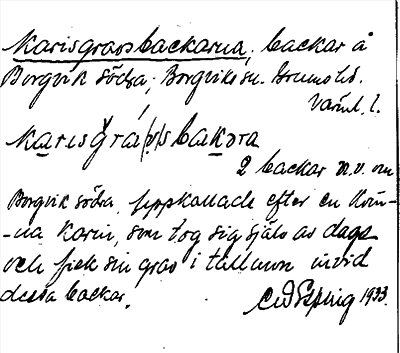 Karisgravsbackarna, backar å
Borgvik södra, Borgviks sn. Grums hd.
Värml. l.
karisgrá(v)sbakɷra
2 backar n.v. om
Borgvik södra. Uppkallade efter en kvin-
-na Karin, som tog sig själv av daga
och fick sin grav i tallmon invid
dessa backar.
1933.